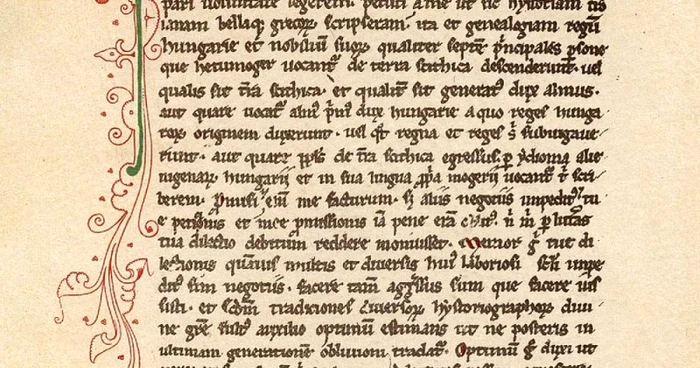 pari voluntate legerem petisti a me ut sic hystoriam tro
ianam bellaq; grecoꝝ scripseram. ita et genealogiam regũ
hungarie et nobiliũ suoꝝ qualiter septẽ pⁱncipales ꝑsone
que hetumoger uocantᷣ de terra scithica descenderunt. uel
qualis sit t̃ra scithica. et qualit̃ sit generatꝰ dux almus.
aut quare uocatᷣ almꝰ pⁱmꝰ dux hungarie a quo reges hunga
roꝝ originem duxerunt. uel qͦt regna et reges sͥ subiugaue
runt. aut quare ppl̃s de t̃ra scithica egressus ꝑ ydioma alie
nigenaꝝ hungarij et in sua lingua ꝓpⁱa mogerij uocantᷣ tͥ scri
berem. Promisi eni̅ me facturum. sꝫ aliis negociis impeditꝰ et tu
e petic̃nis et mee pmissionis iã pene erã obl̃itꝰ. nͥ mͥ ꝑ litt̃as
tua dilectio debitum reddere monuisset. Memor gͥ tue di
lectionis quãuis multis et diuersis huiꝰ laboriosi sc̃li impe
ditꝰ sim negociis. facere tam̃ aggressus sum que facere ius
sisti. et scd̃m tradiciones diuersoꝝ hystoriographoꝝ diui
ne gr̃e fultꝰ auxilio optimũ estimans ut ne posteris in
ultimam generationẽ obliuioni tradatᷣ. Optimũ gͦ duxi ut